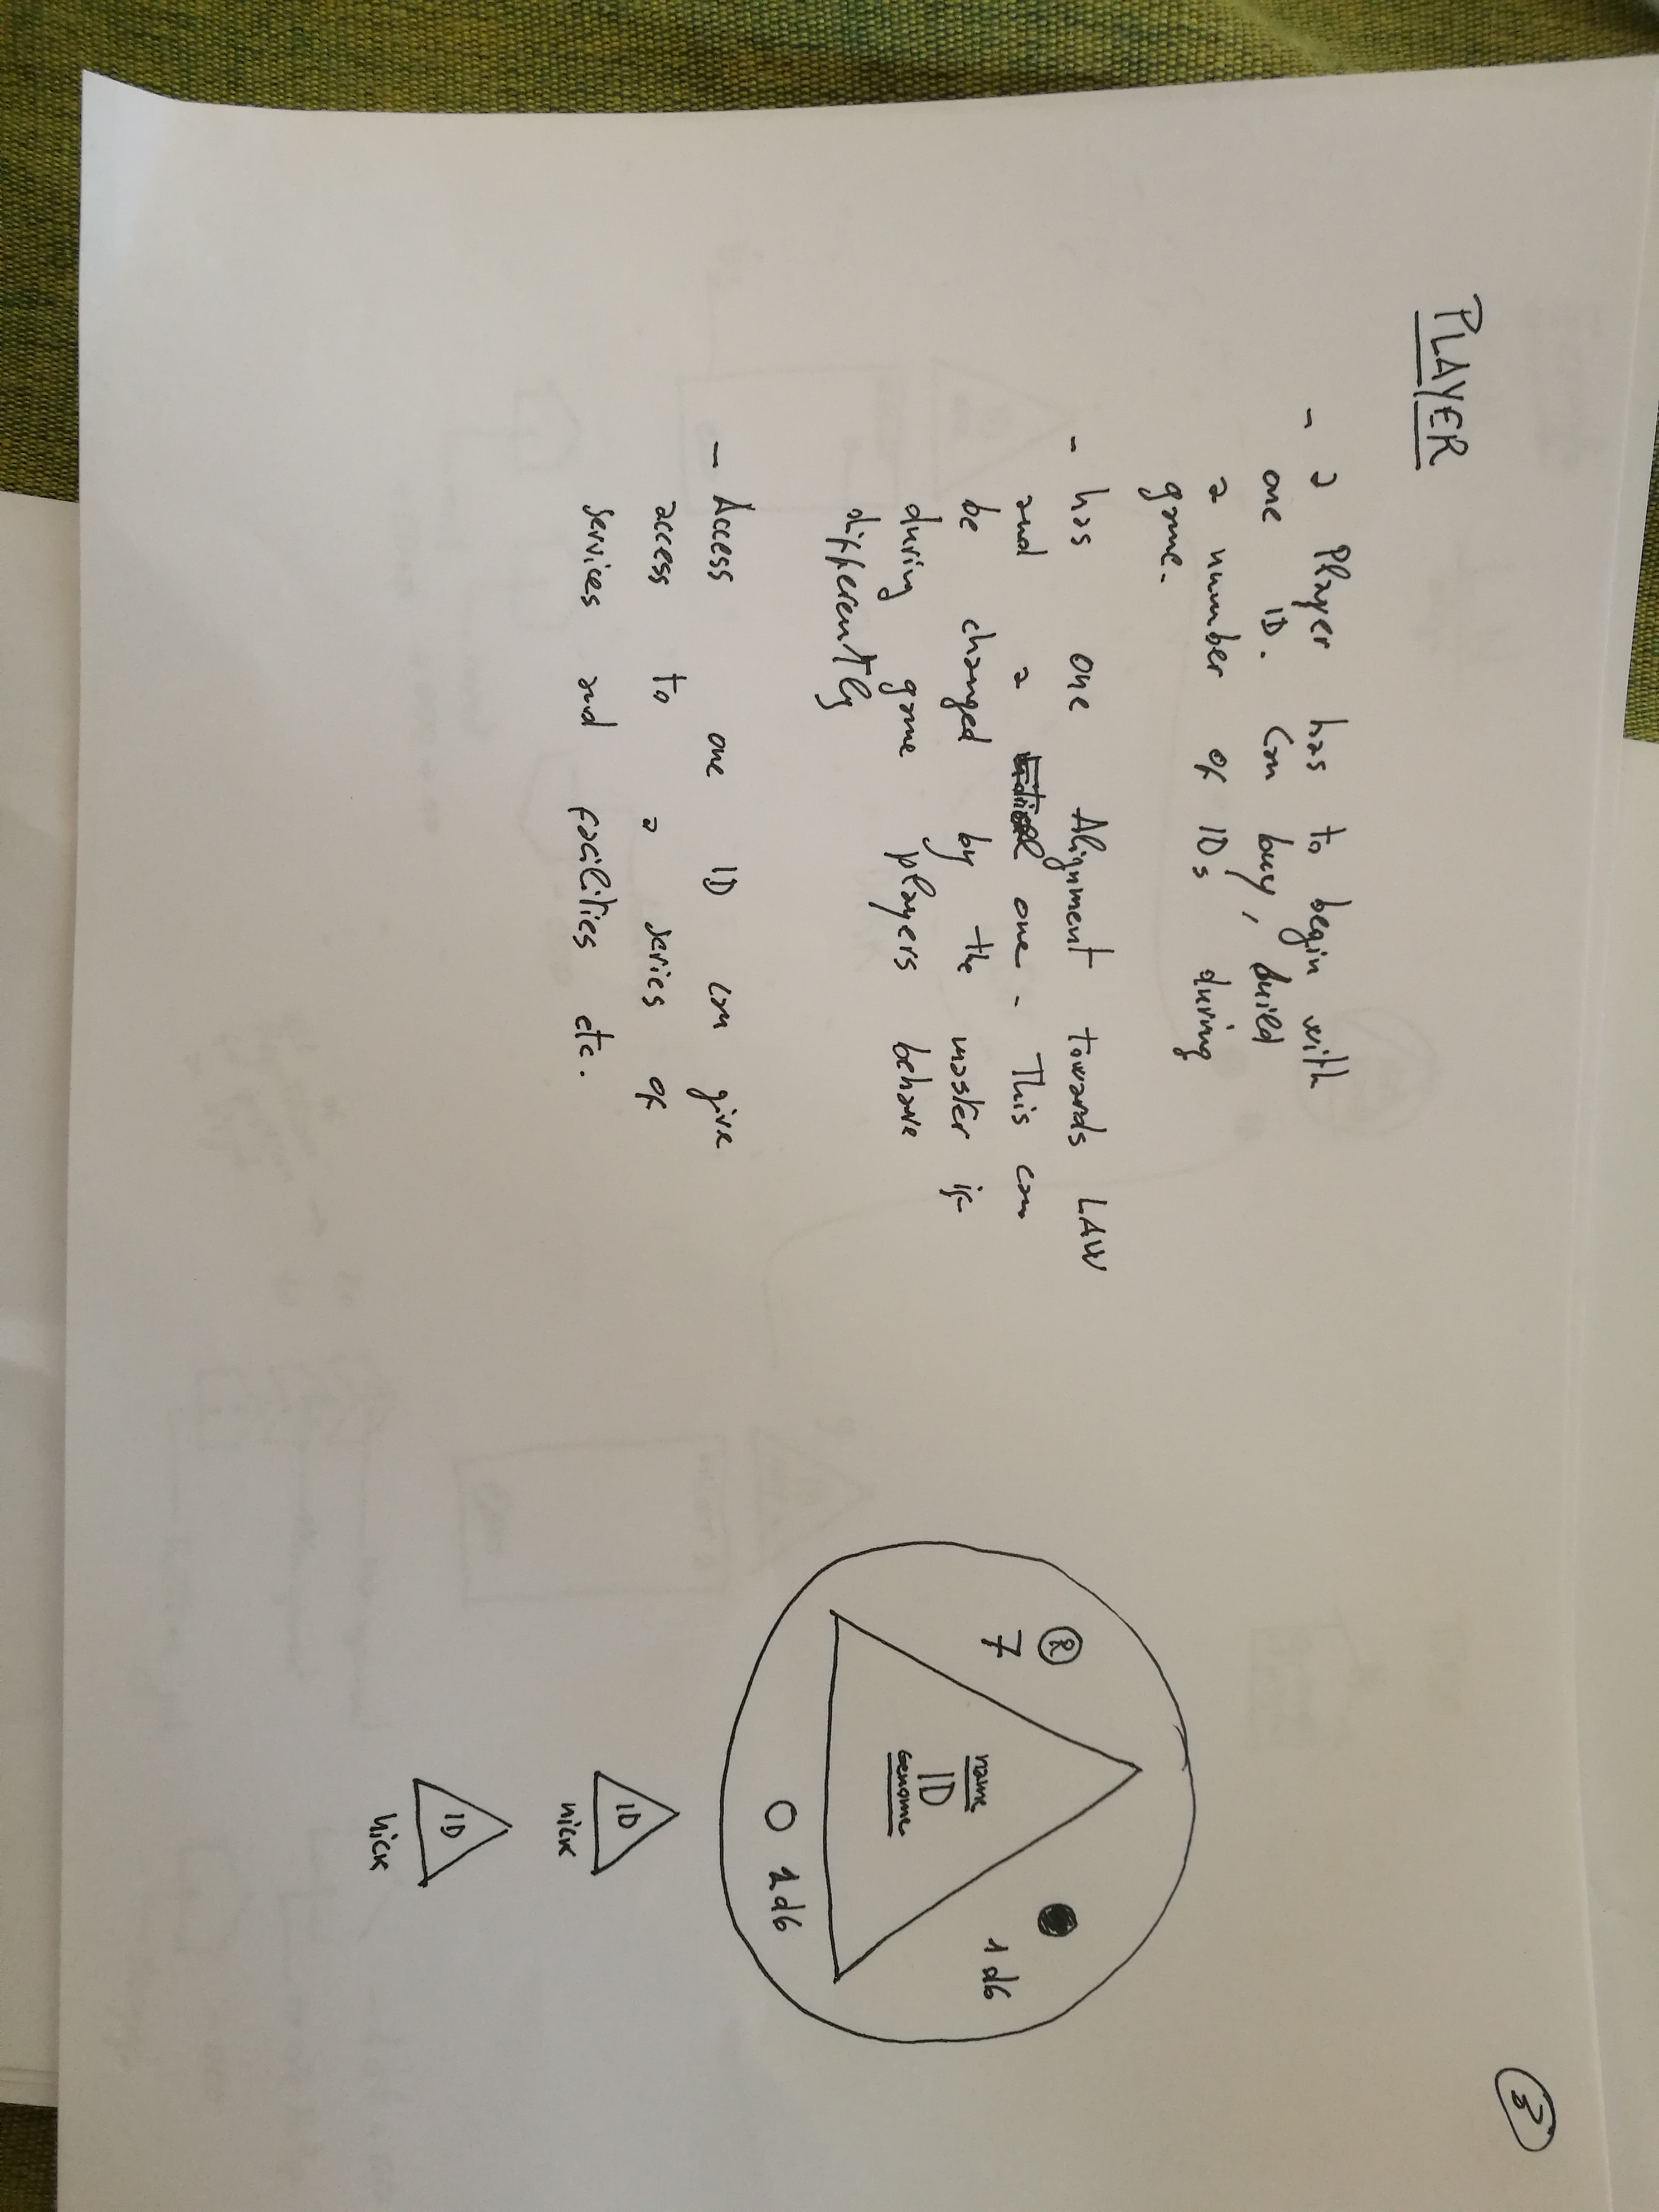 3
PLAYER
- a Player has to begin with
one ID. Can buy, build
a number of IDs during
game.
- has one Alignment towards LAW
and a one. This can
be changed by the master if
during game players behave
differently
- Access one ID can give
access to a series of
services and facilities etc.
R
7
1d6
name
ID
Genome
1d6
ID
nick
ID
nick